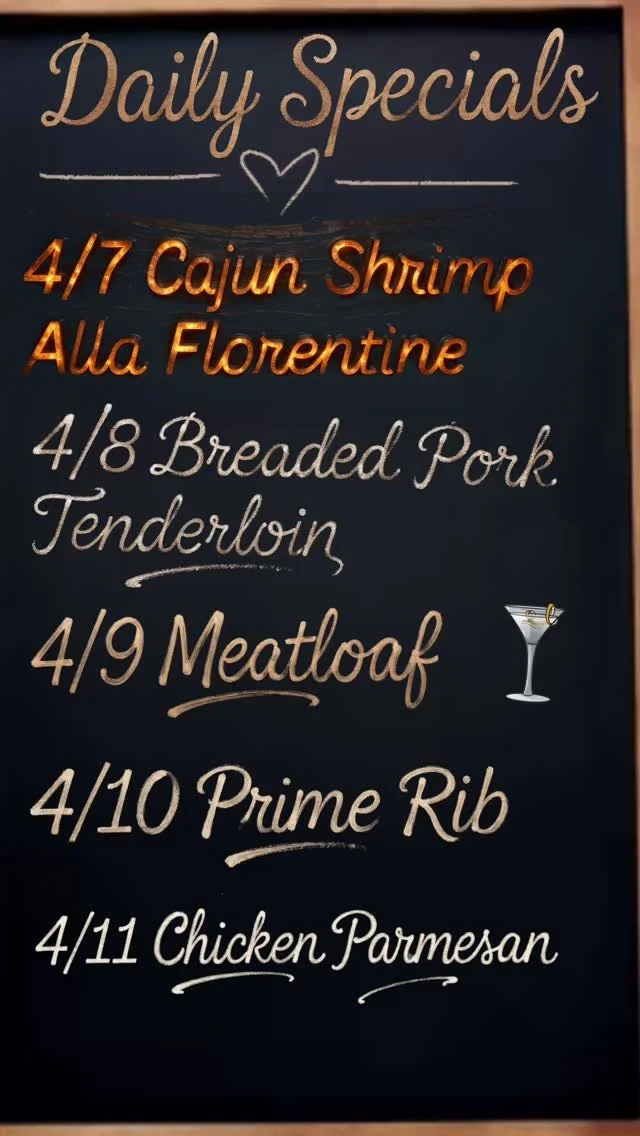 Daily Specials
4/7 Cajun Shrimp
Alla Florentine
4/8 Breaded Pork
Tenderloin
4/9 Meatloaf
4/10 Prime Rib
4/11 Chicken Parmesan